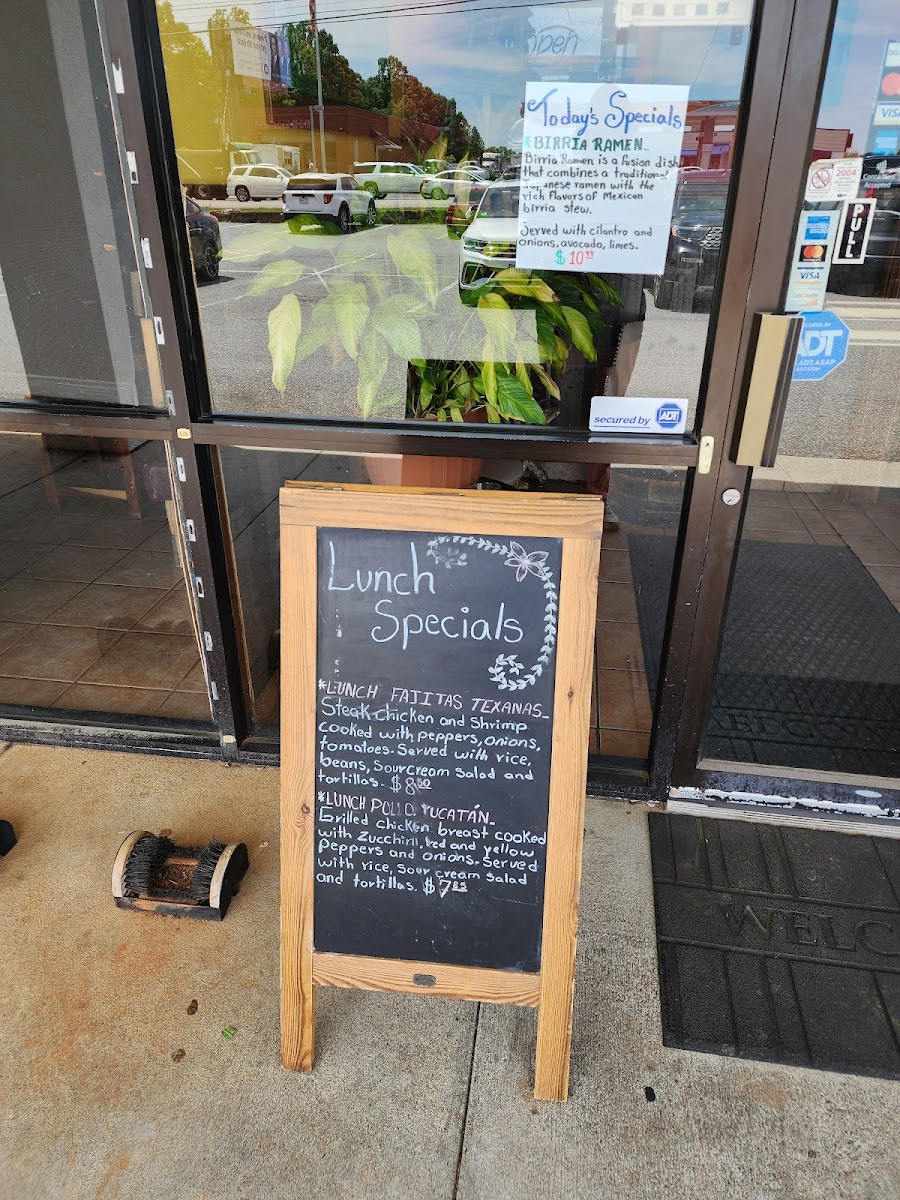 Today's Specials
*BIRRIA RAMEN_
Birria Ramen is a fosion dish
that combines a traditional
Japanese ramen with the
rich flavors of Mexican
birria stew.
Served with cilantro and
onions, avocado, limes.
$10.99
2004
PULL
VISA
VISA
DISCOVER
SECURED BY
ADT
secured by ADT
Lunch
Specials
*LUNCH FAJITAS TEXANAS_
Steak chicken and shrimp
cooked with peppers, onions,
tomatoes. Served with rice,
beans, sour cream salad and
tortillas. $8.50
*LUNCH POLLO YUCATÁN_
Grilled chicken breast cooked
with zucchini, red and yellow
peppers and onions. Served
with rice, sour cream salad
and tortillas. $7.85
WELC